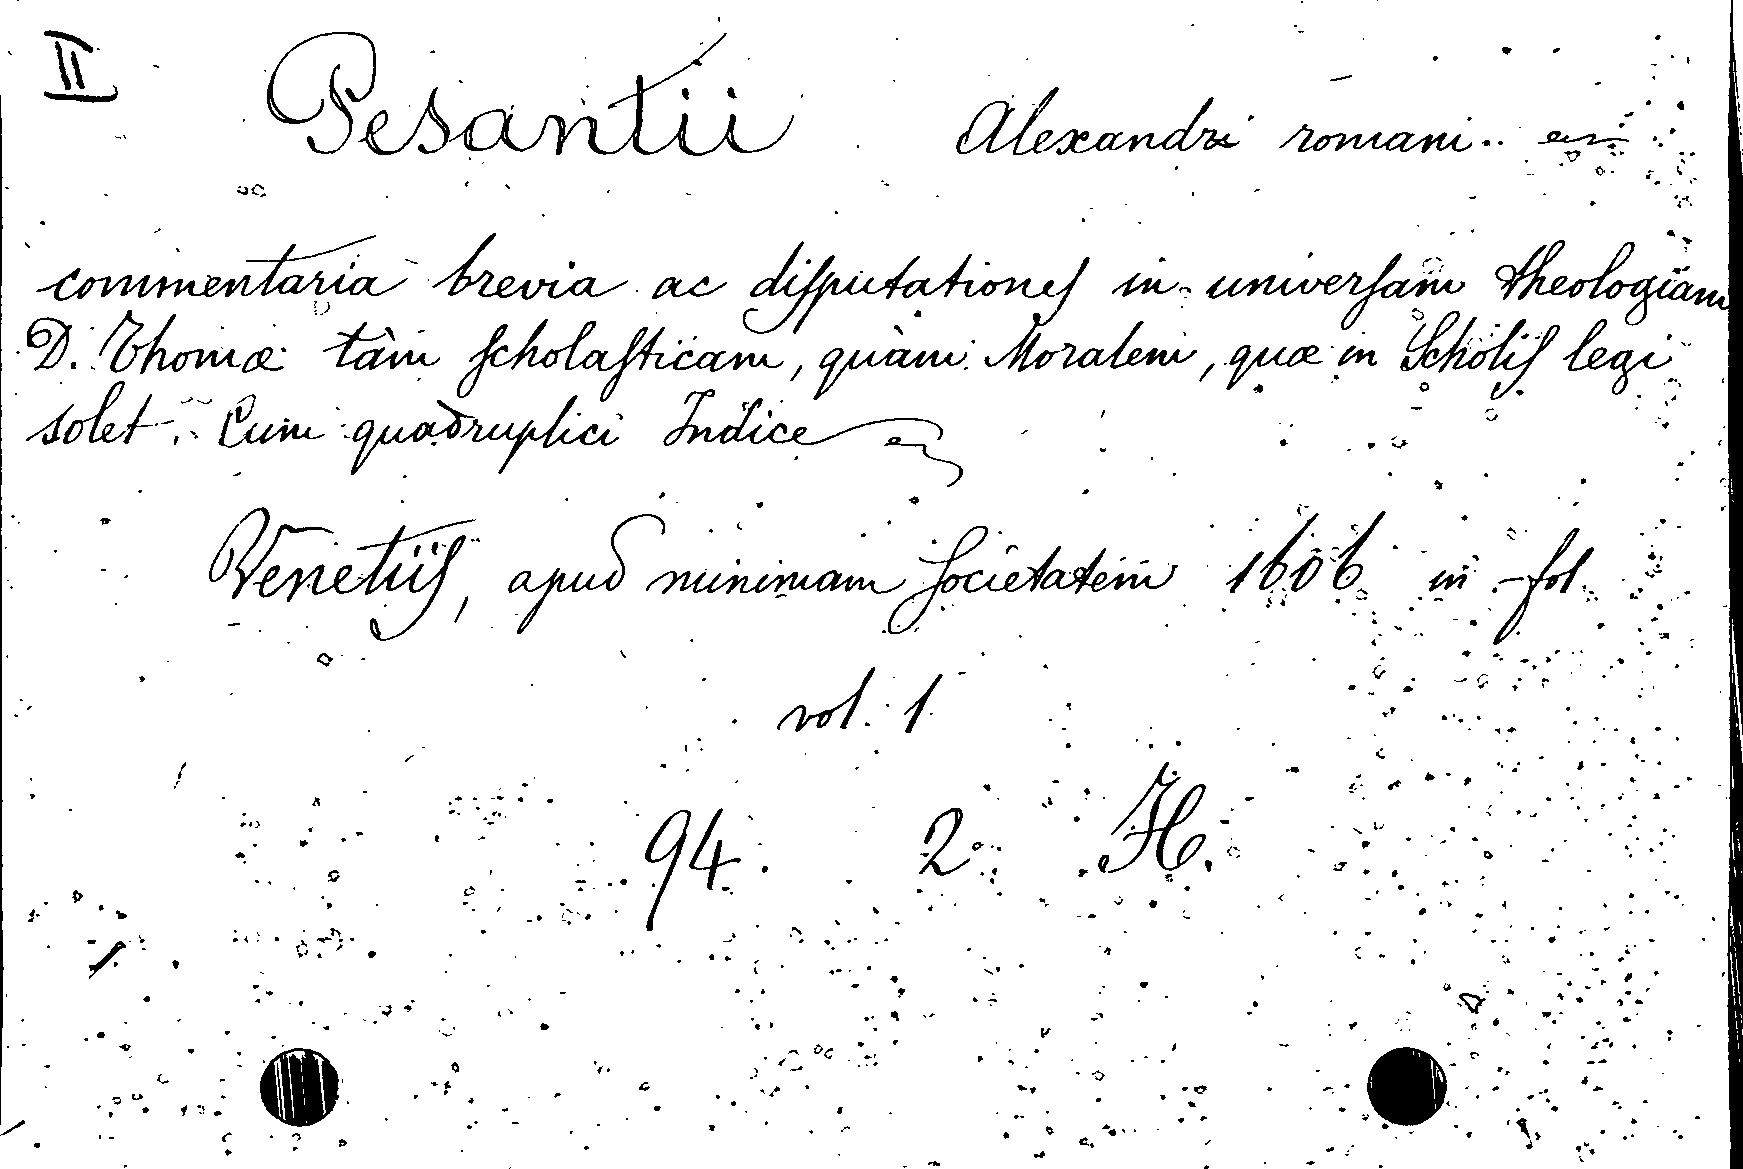 II
Pesantii Alexandri romani..
commentaria brevia ac diſputationeſ in univerſam theologiam
D. Thomæ tàm ſcholaſticam, quàm Moralem, quæ in Scholiſ legi
solet. Cum quadruplici Indice
Venetiiſ, apud minimam ſocietatem 1606 in-fol.
vol. 1
94. 2. H.